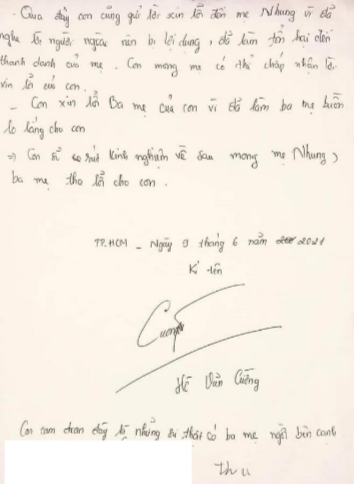 - Qua đây con cũng gửi lời xin lỗi đến mẹ Nhung vì đã
nghe lời người ngoài nên bị lợi dụng, đã làm tổn hại đến
thanh danh của mẹ. Con mong mẹ có thể chấp nhận lời
xin lỗi của con.
- Con xin lỗi Ba mẹ của con vì đã làm ba mẹ buồn
lo lắng cho con
=> Con sẽ rút kinh nghiệm về sau mong mẹ Nhung,
ba mẹ tha lỗi cho con.
TP.HCM - Ngày 9 tháng 6 năm 2021
Kí tên
Cường
Hồ Văn Cường
Con cam đoan đây là những lời thật có ba mẹ ngồi bên cạnh